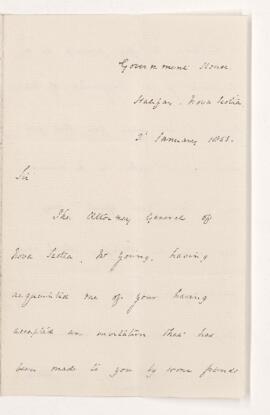 Government House
Halifax. Nova Scotia
2d January 1855.
Sir
The Attorney General of
Nova Scotia, Mr Young, having
acquainted me of your having
accepted an invitation that has
been made to you by some friends